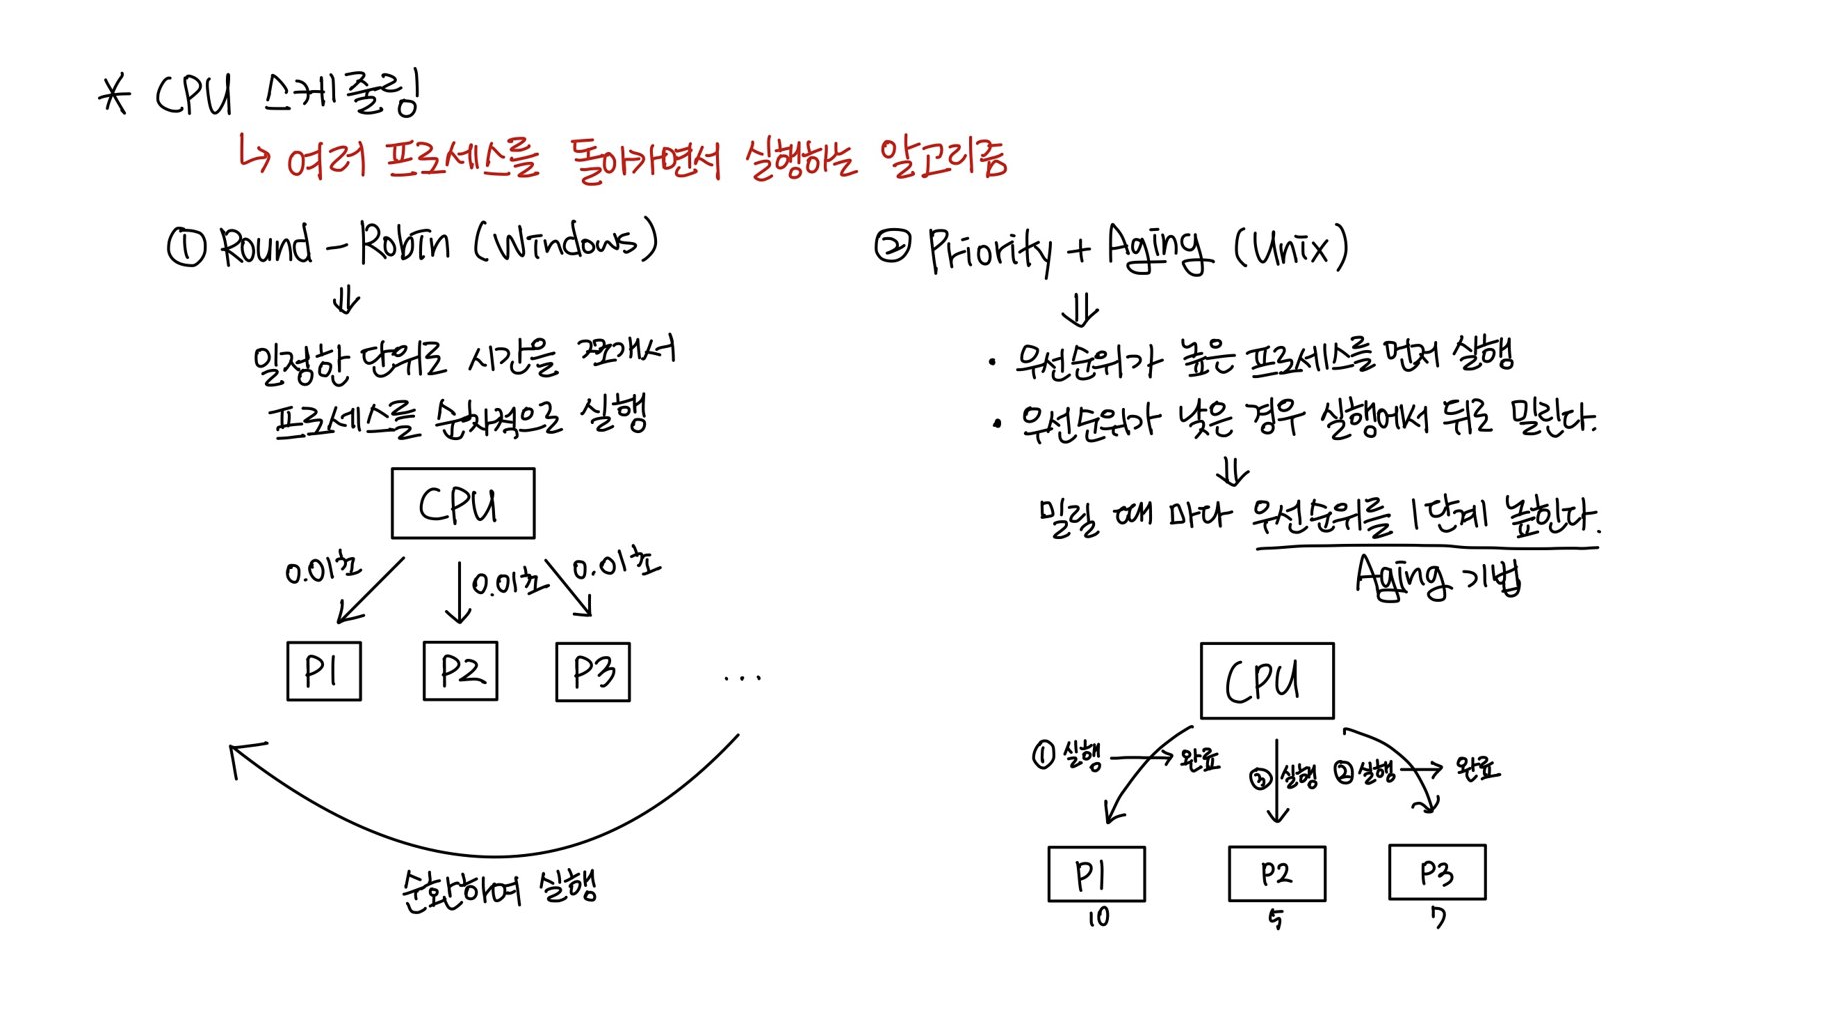 * CPU 스케줄링
↳ 여러 프로세스를 돌아가면서 실행하는 알고리즘
① Round - Robin (Windows)
⇓
일정한 단위로 시간을 쪼개서
프로세스를 순차적으로 실행
CPU
0.01초 0.01초 0.01초
P1 P2 P3 ...
순환하여 실행
② Priority + Aging (Unix)
⇓
· 우선순위가 높은 프로세스를 먼저 실행
· 우선순위가 낮은 경우 실행에서 뒤로 밀린다.
⇓
밀릴 때 마다 우선순위를 1단계 높힌다.
Aging 기법
CPU
① 실행 → 완료 ③ 실행 ② 실행 → 완료
P1 P2 P3
10 5 7